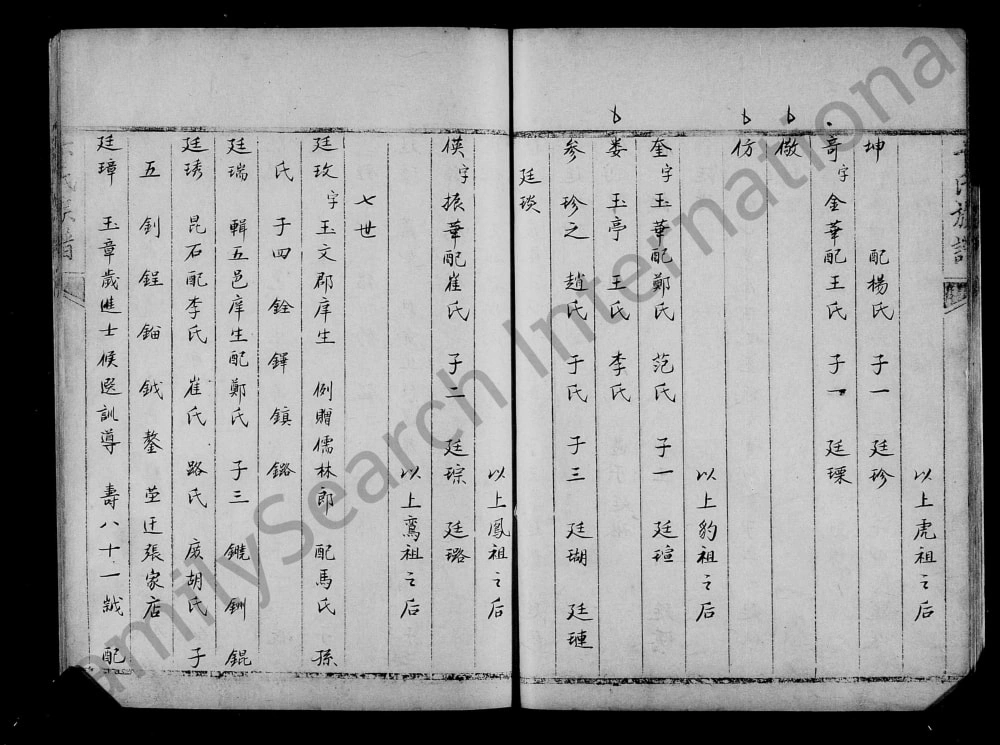 以上虎祖之后
坤 配楊氏 子一 廷珍
哥字金華配王氏 子一 廷瑮
儆
仿
以上豹祖之后
奎字玉華配鄭氏 范氏 子一 廷瑄
娄 玉亭 王氏 李氏
参 珍之 趙氏 于氏 子三 廷瑚 廷璉
廷琰
以上鳳祖之后
侯字振華配崔氏 子二 廷琮 廷璐
以上鸞祖之后
七世
廷玫字玉文郡庠生 例贈儒林郎 配馬氏 孫
氏 子四 銓 鐸 鎮 鉻
廷瑞 輯五邑庠生配鄭氏 子三 鐃 釧 錕
廷琇 昆石配李氏 崔氏 路氏 庶胡氏 子
五 釗 鋥 錙 鉞 鏊 茔迁張家店
廷璋 玉章歲進士候选訓導 壽八十一歲 配
FamilySearch International